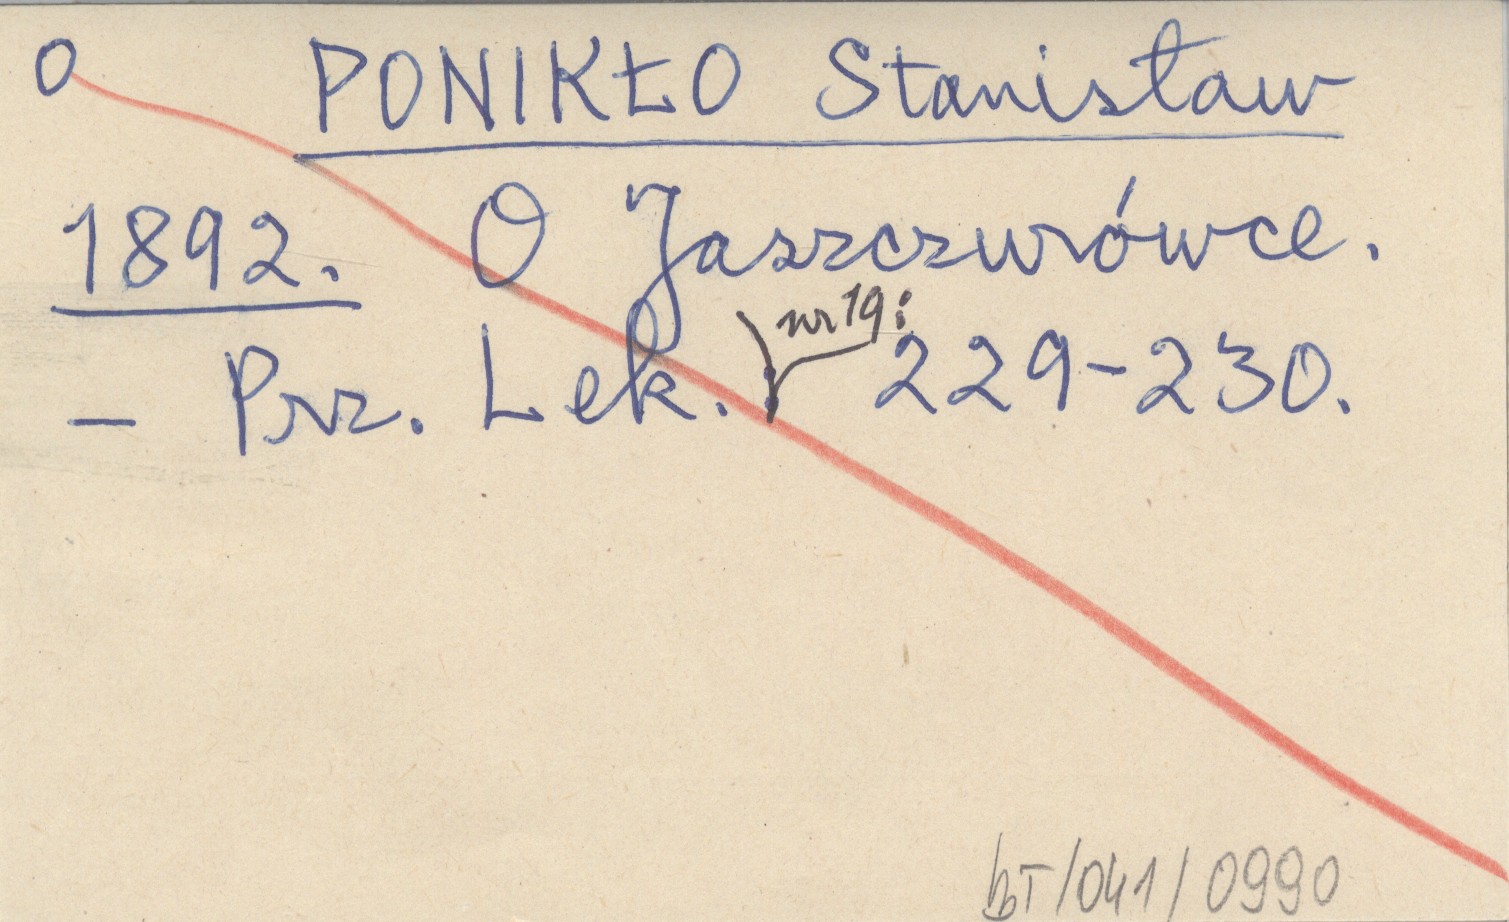 O PONIKŁO Stanisław
1892. O Jaszczurówce.
nr 19:
- Prz. Lek. 229-230.
bT/041/0990